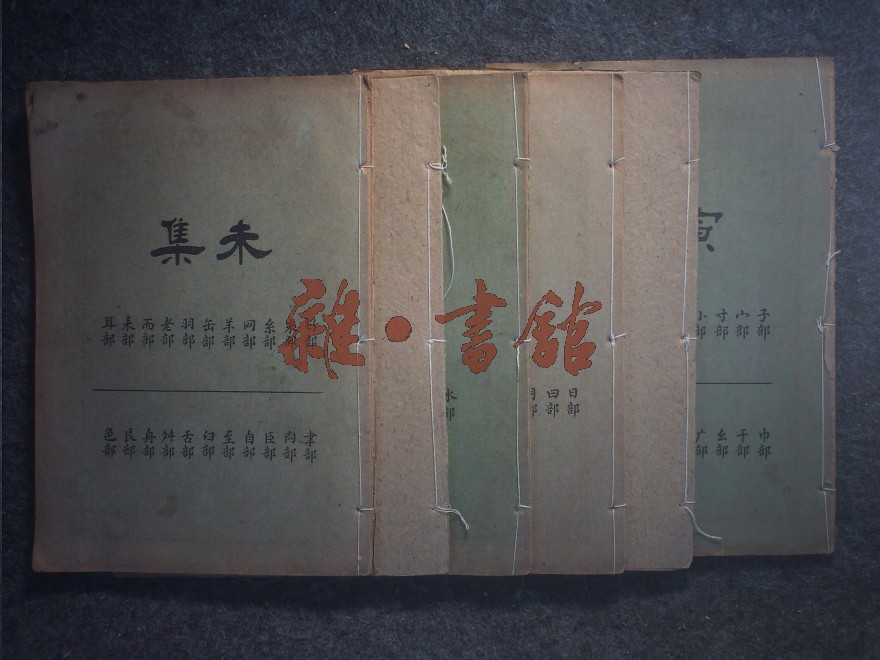 未集
糸部 网部 羊部 缶部 羽部 老部 而部 耒部 耳部
聿部 肉部 臣部 自部 至部 臼部 舌部 舛部 舟部 艮部 色部
水部
日部 曰部
寅
子部 宀部 寸部 小部
巾部 干部 幺部 广部
雜·書館